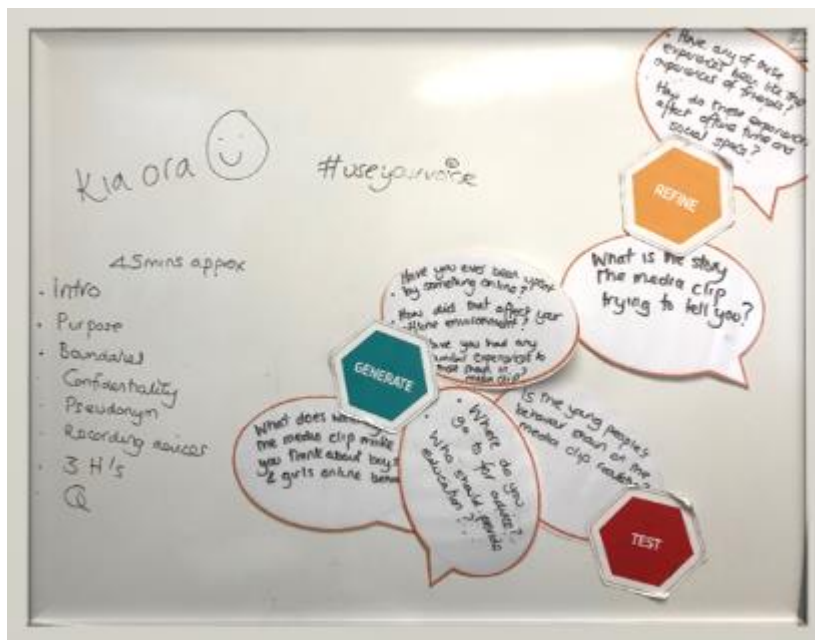 Kia ora
#useyourvoice
45mins approx
· Intro
· Purpose
· Boundaries
· Confidentiality
· Pseudonym
· Recording devices
· 3 H's
· Q
· Have any of these
experiences been like the
experiences of friends?
· How do these experiences
affect offline time and
social space?
REFINE
What is the story
the media clip
trying to tell you?
· Have you ever been upset
by something online?
· How did that affect your
offline environment?
Have you had any
similar experiences to
those shown in
media clip?
GENERATE
What does
the media clip make
you think about boys
& girls online
· Where do you
go to for advice?
· Who should provide
education?
Is the young people's
behavior shown on the
media clip
TEST